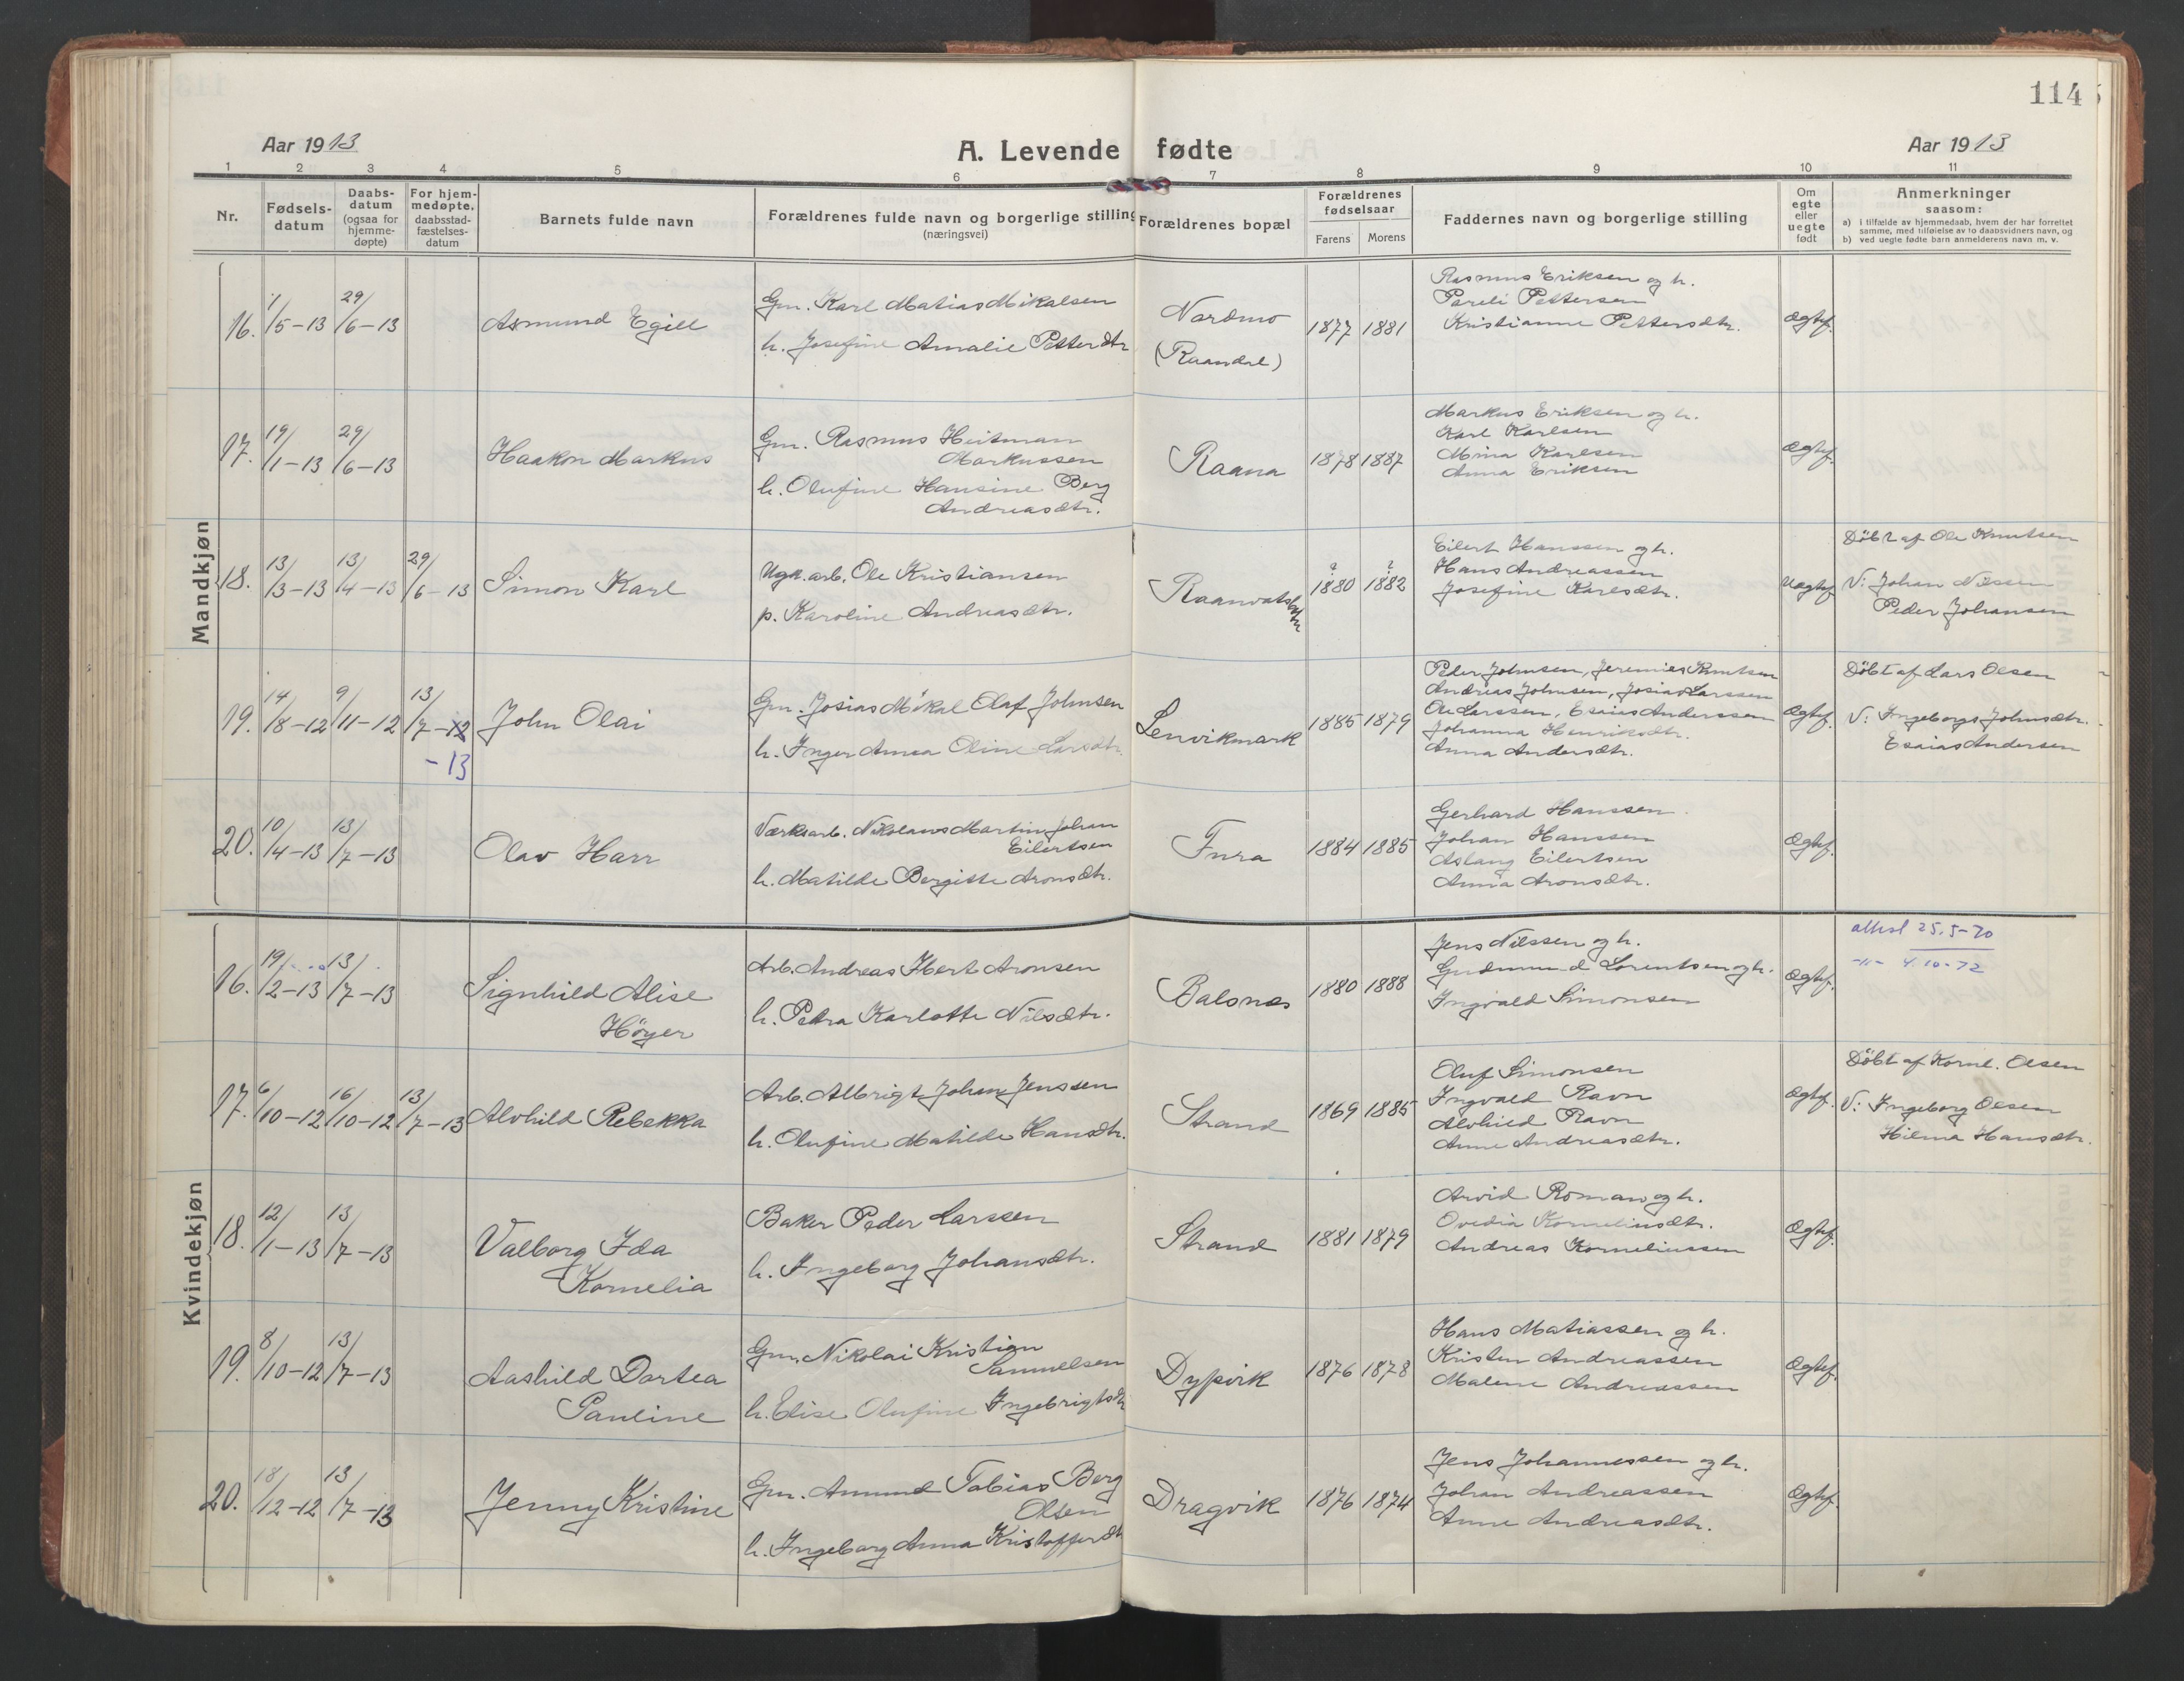 114
Aar 1913
A. Levende fødte
Aar 1913
1 2 3 4 5 6 7 8 9 10 11
Nr.
Fødsels-
datum
Daabs-
datum
(ogsaa for
hjemme-
døpte)
For hjem-
medøpte.
daabsstad-
fæstelses-
datum
Barnets fulde navn
Forældrenes fulde navn og borgerlige stilling
(næringsvei)
Forældrenes bopæl
Forældrenes
fødselsaar
Farens Morens
Faddernes navn og borgerlige stilling
Om
egte
eller
uegte
født
Anmerkninger
saasom:
a) i tilfælde av hjemmedaab, hvem der har forrettet
samme, med tilføielse av to daabsvidners navn, og
b) ved uegte fødte barn anmelderens navn m. v.
Mandkjøn
16. 1/5-13 29/6-13
Asmund Egill
Gm. Karl Matias Mikalsen
h. Josefine Amalie Petterdtr
Nordmo
(Raandal)
1877 1881
Rasmus Eriksen og h.
Pareli Pettersen
Kristianne Pettersdtr.
Ægtef.
17. 19/1-13 29/6-13
Haakon Markus
Gm. Rasmus Heitman
Markussen
h. Olufine Hansine Berg
Andreasdtr.
Raana
1878 1887
Markus Eriksen og h.
Karl Karlsen
Mina Karlsen
Anna Eriksen
Ægtef.
18. 13/3-13 13/4-13 29/6-13
Simon Karl
Ugk. arb. Ole Kristiansen
p. Karoline Andreasdtr.
? 1880 ? 1882
Eilert Hanssen og h.
Hans Andreassen
Josefine Karlsdtr.
Uægtef.
Döbt af Ole Knutsen
V: Johan Nilssen
Peder Johansen
19. 14/8-12 9/11-12 13/7-12
-13
John Olai
Gm. Josias Mikal Olaf Johnsen
h. Inger Anna Oline Larsdtr.
Lenvikmark
1885 1879
Peder Johnsen, Jeremias Knutsen
Andreas Johnsen, Josias Larssen
Ole Larssen, Esaias Anderssen
Johanna Henriksdtr.
Anna Andersdtr.
Ægtef.
Döbt af Lars Olsen
V: Ingeborg Johnsdtr.
Esaias Andersen
20. 10/4-13 13/7-13
Olav Harr
Værksarb. Nikolaus Martin Johan
Eilertsen
h. Matilde Bergitte Aronsdtr.
Fura
1884 1885
Gerhard Hanssen
Johan Hanssen
Aslaug Eilertsen
Anna Aronsdtr.
Ægtef.
Kvindekjøn
16. 19/2-13 13/7-13
Signhild Alise
Höyer
Arb. Andreas Hbert Aronsen
h. Petra Karlotte Nilsdtr.
Balsnes
1880 1888
Jens Nilssen og h.
Gudmund Lorentsen og h.
Ingvald Simonsen
Ægtef.
attest 25.5-70
-"- 4.10-72
17. 6/10-12 16/10-12 13/7-13
Alvhild Rebekka
Arb. Albrigt Johan Jenssen
h. Olufine Matilde Hansdtr.
Strand
1869 1885
Oluf Simonsen
Ingvald Ravn
Alvhild Ravn
Anne Andreasdtr.
Ægtef.
Döbt af Kornl. Olsen
V: Ingeborg Olsen
Hilma Hansdtr.
18. 12/1-13 13/7-13
Valborg Ida
Kornelia
Baker Peder Larssen
h. Ingeborg Johansdtr.
Strand
1881 1879
Arvid Roman og h.
Ovedia Korneliusdtr.
Andreas Korneliussen
Ægtef.
19. 8/10-12 13/7-13
Aashild Dortea
Pauline
Gm. Nikolai Kristian
Samuelsen
h. Elise Olufine Ingebrigtsdtr
Dypvik
1876 1878
Hans Matiassen og h.
Kristen Andreassen
Malene Andreassen
Ægtef.
20. 18/12-12 13/7-13
Jenny Kristine
Gm. Amund Tobias Berg
Olsen
h. Ingeborg Anna Kristofferdtr
Dragvik
1876 1874
Jens Johannessen og h.
Johan Andreassen
Anne Andreasdtr.
Ægtef.